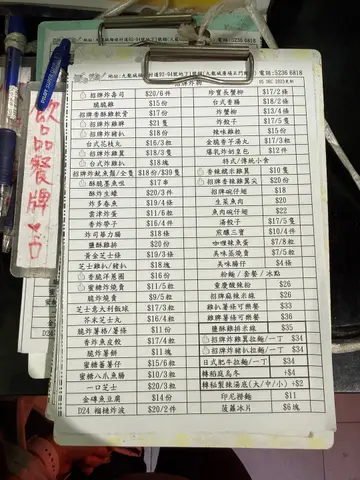 地址:九龍城福佬村道93-94號地下1號舖(九龍城廣場正門對面) 電話:5236 6818
招牌炸物
招牌炸壽司 $20/6件
脆脆雞 $15份
招牌香酥雞軟骨 $17份
招牌炸雞髀 $21隻
招牌炸豬扒 $18份
台式花枝丸 $16/3粒
招牌炸雞翼 $18/3隻
台式炸雞扒 $18塊
招牌炸魷魚鬚/全隻 $18份/$39隻
酥脆墨魚咀 $17串
酥炸生蠔 $20/3件
炸多春魚 $19/4條
雲津炸蛋 $11/6粒
香炸帶子 $16/4件
炸司華力腸 $18條
鹽酥雞排 $20份
黃金芝士條 $19/3條
芝士雞扒/豬扒 $18塊
香脆洋蔥圈 $16份
蜜糖炸燒賣 $11/5粒
脆炸燒賣 $9/5粒
芝士意大利飯球 $17/3粒
芥末芝士丸 $16/4粒
脆炸薯格/薯條 $11份
香炸魚皮餃 $17/4粒
脆炸薯餅 $11塊
蜜糖蕃薯仔 $15/6粒
蜜糖八爪魚腸 $10/3粒
一口芝士 $20/3粒
金磚魚豆腐 $14份
D24 榴槤炸波 $20/2件
炸寶瓦蟹柳 $17/2條
台式香腸 $18/2條
炸蟹柳 $13/4條
炸餃子 $17/5隻
辣味雞粒 $15份
金脆香子湯丸 $17/3粒
爆乳炸奶皇包 $12/2件
特式/傳統小食
香辣蠔汁雞翼 $18/3隻
招牌香辣雞翼尖 $20份
招牌碗仔翅 $18
生菜魚肉 $20
魚肉碗仔翅 $22
湯餃子 $17/5隻
煎釀三寶 $10/4件
咖喱辣魚蛋 $7/8粒
美味蒸燒賣 $7/5粒
美味腸仔 $4條
粉麵/套餐/冰點
重慶酸辣粉 $26
招牌麻辣米線 $26
雞扒薯條可樂餐 $33
雞髀薯條可樂餐 $36
鹽酥雞排米線 $35
招牌炸雞翼拉麵/一丁 $34
招牌炸豬扒拉麵/一丁 $34
日式肥牛拉麵/一丁 $34
轉稻庭烏冬 +$4
轉秘製辣湯底(大/中/小) +$2
印尼撈麵 $11
菠蘿冰片 $6塊
飲品餐牌